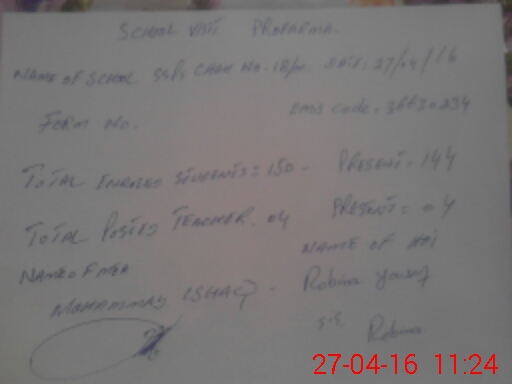 SCHOOL VISIT PROFARMA.
NAME OF SCHOOL SSPS CHAK NO. 18/ DATE: 27/04/16
FORM NO. EMIS code = 36630234
TOTAL ENROLLED STUDENTS = 150 - PRESENT = 144
TOTAL POSTED TEACHER. 04 PRESENT = 04
NAME OF MEA NAME OF HOI
MUHAMMAD ISHAQ - Robina Yousaf
Robina
27-04-16 11:24